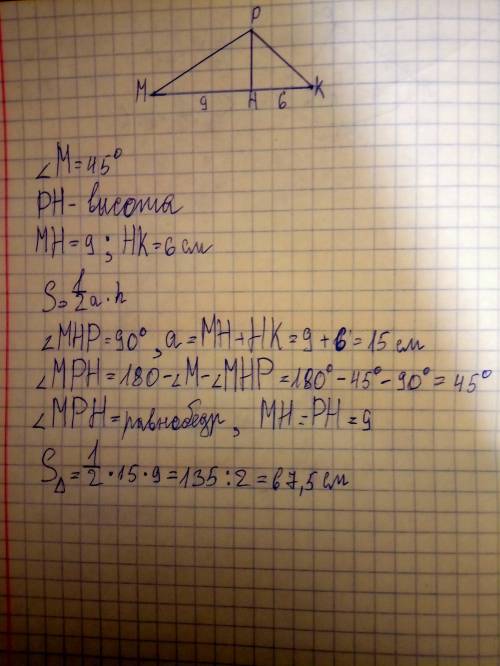 P
M 9 H 6 K
∠M=45°
PH- висота
MH=9 ; HK=6 см
S=1/2 a·h
∠MHP=90°, a=MH+HK=9+6=15 см
∠MPH=180-∠M-∠MHP=180°-45°-90°=45°
∠MPH=равнобедр, MH=PH=9
S△=1/2·15·9=135:2=67,5 см